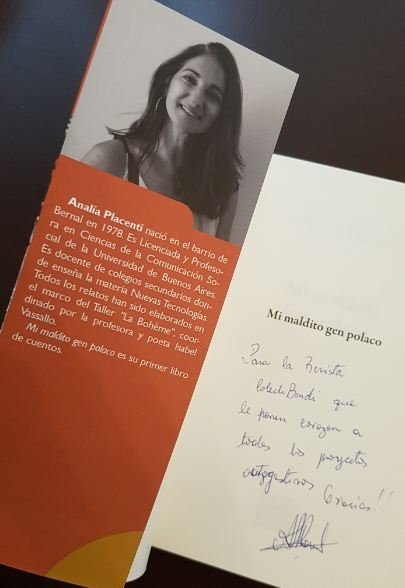 Analía Placenti nació en el barrio de
Bernal en 1978. Es Licenciada y Profeso-
ra en Ciencias de la Comunicación So-
cial de la Universidad de Buenos Aires.
Es docente de colegios secundarios don-
de enseña la materia Nuevas Tecnologías.
Todos los relatos han sido elaborados en
el marco del Taller "La Bohème", coor-
dinado por la profesora y poeta Isabel
Vassallo.
Mi maldito gen polaco es su primer libro
de cuentos.
Mi maldito gen polaco
Para la Revista
que
le ponen corazon a
todos los proyectos
autogestivos Gracias!!